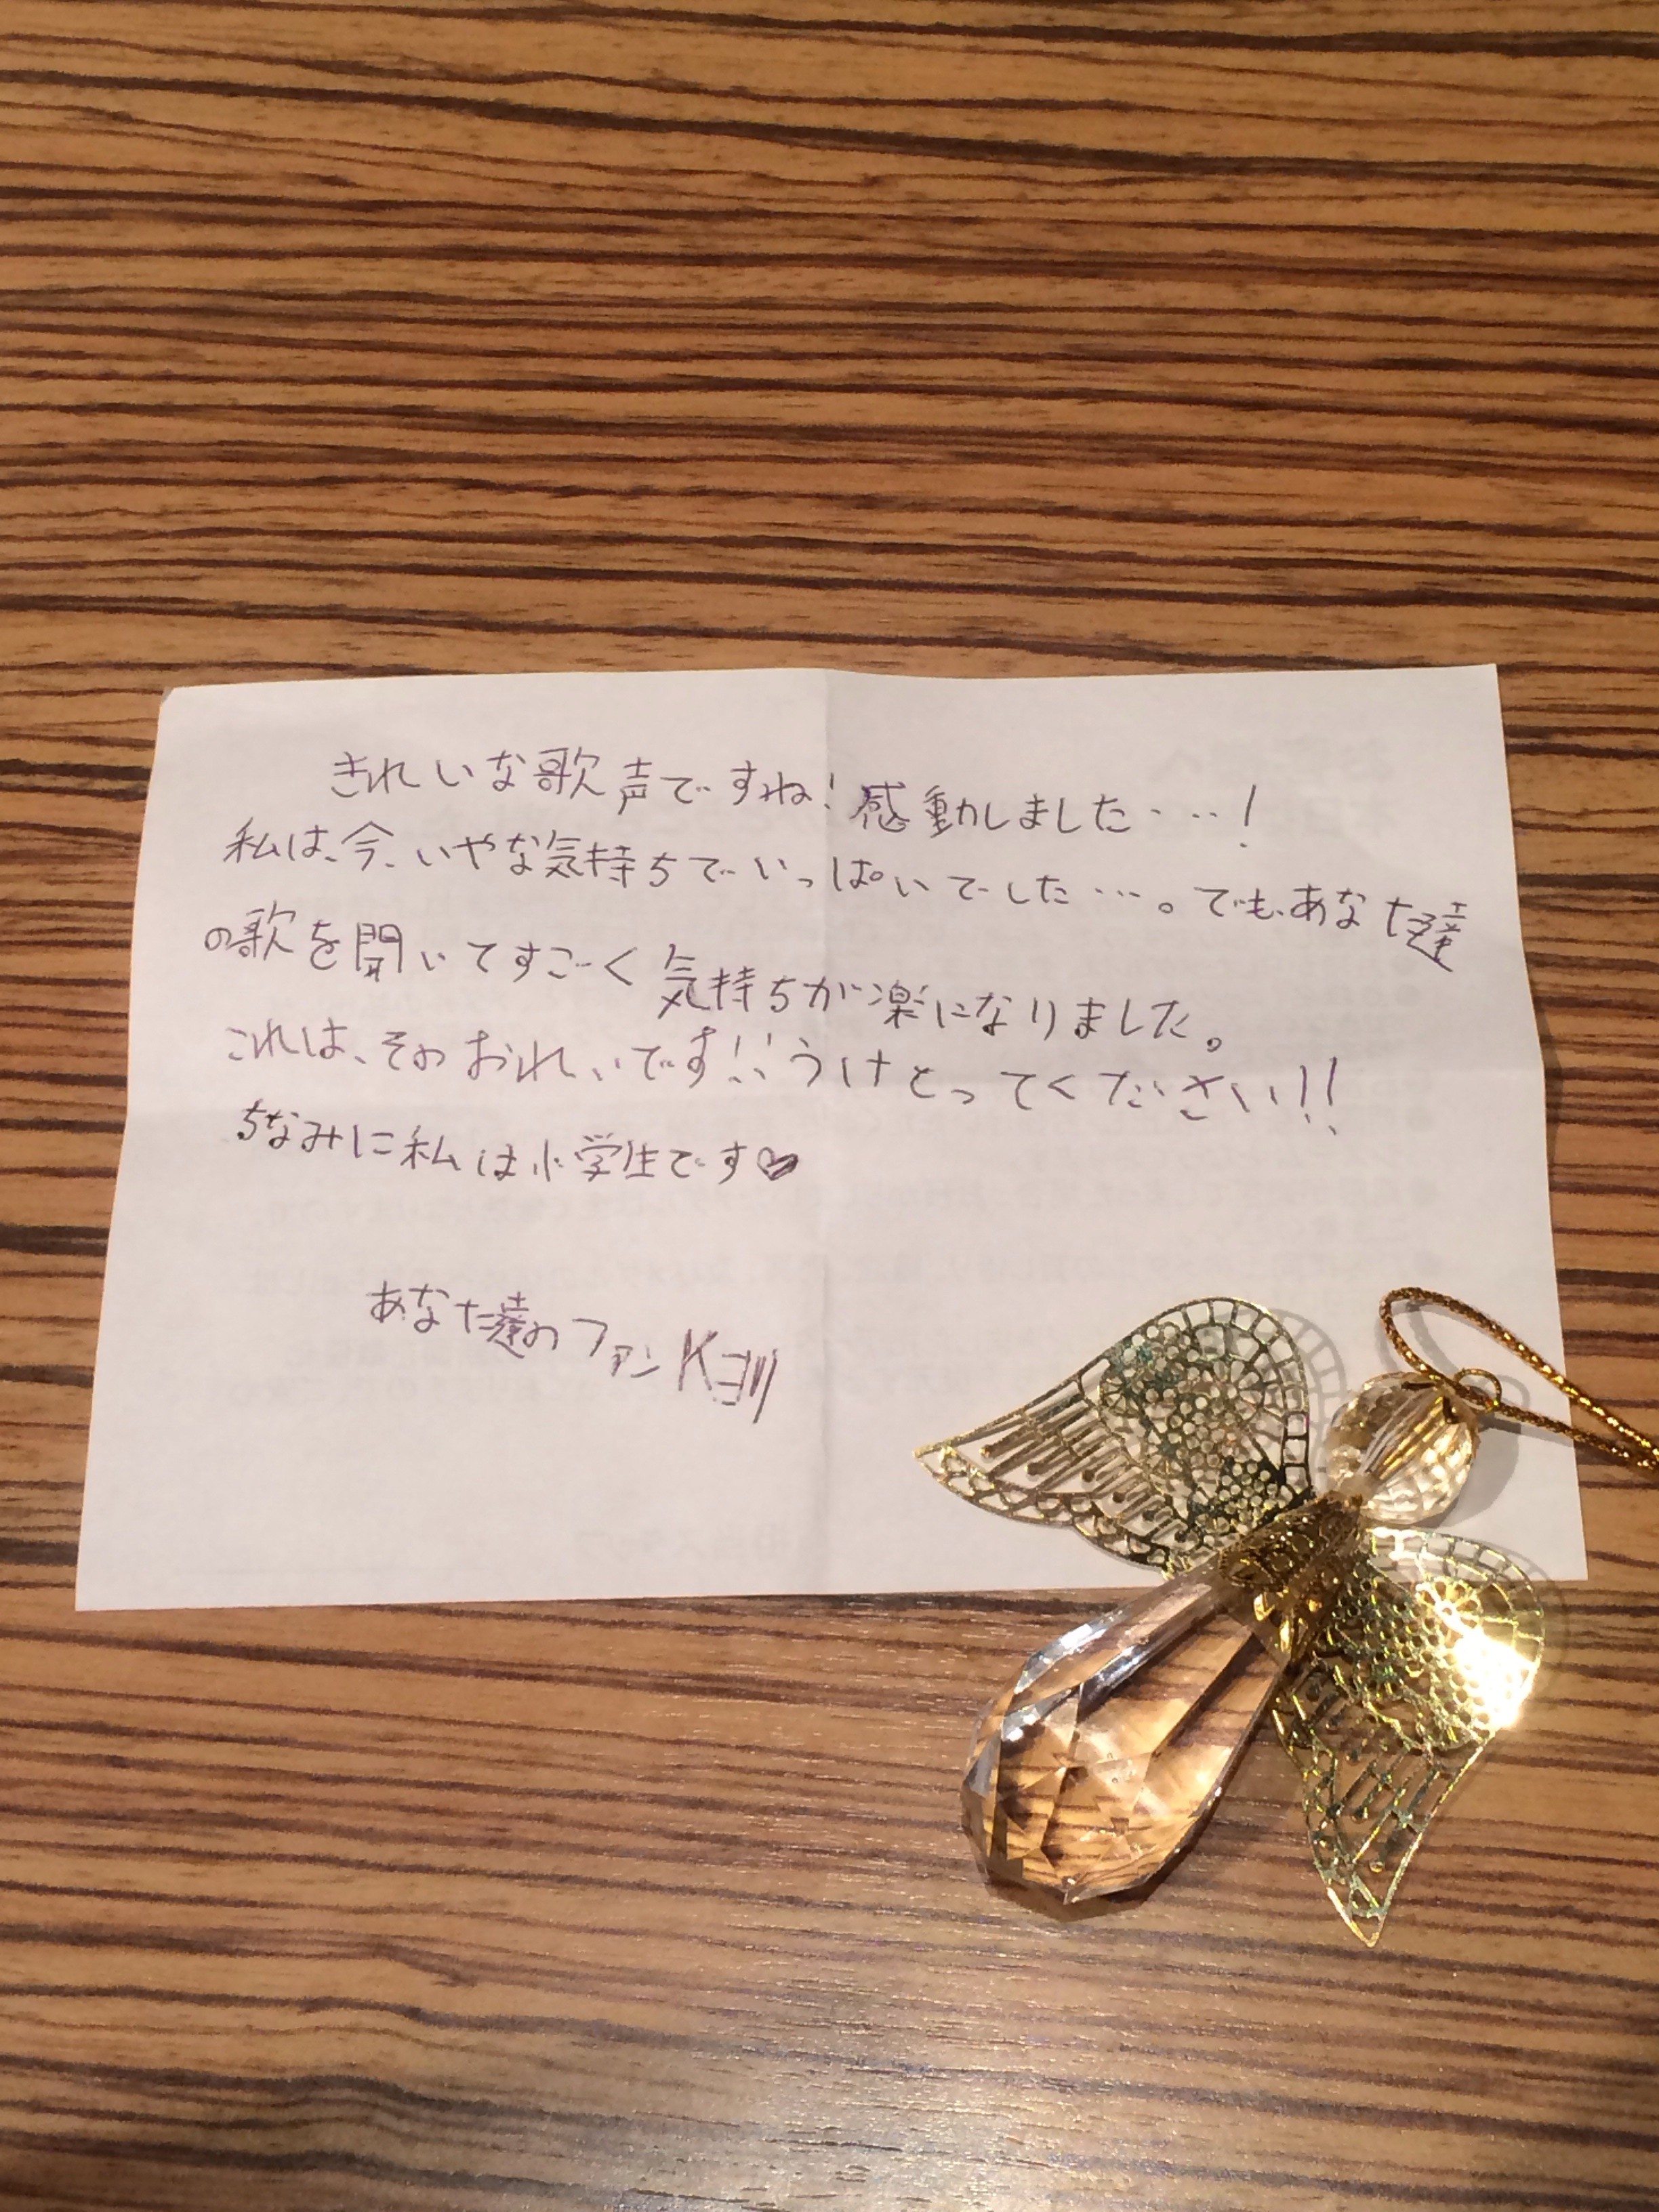 きれいな歌声ですね!感動しました……!
私は、今、いやな気持ちでいっぱいでした…。でも、あなた達
の歌を聞いてすごく気持ちが楽になりました。
これは、そのおれいです!!うけとってください!!
ちなみに私は小学生です♡
あなた達のファン Kヨリ